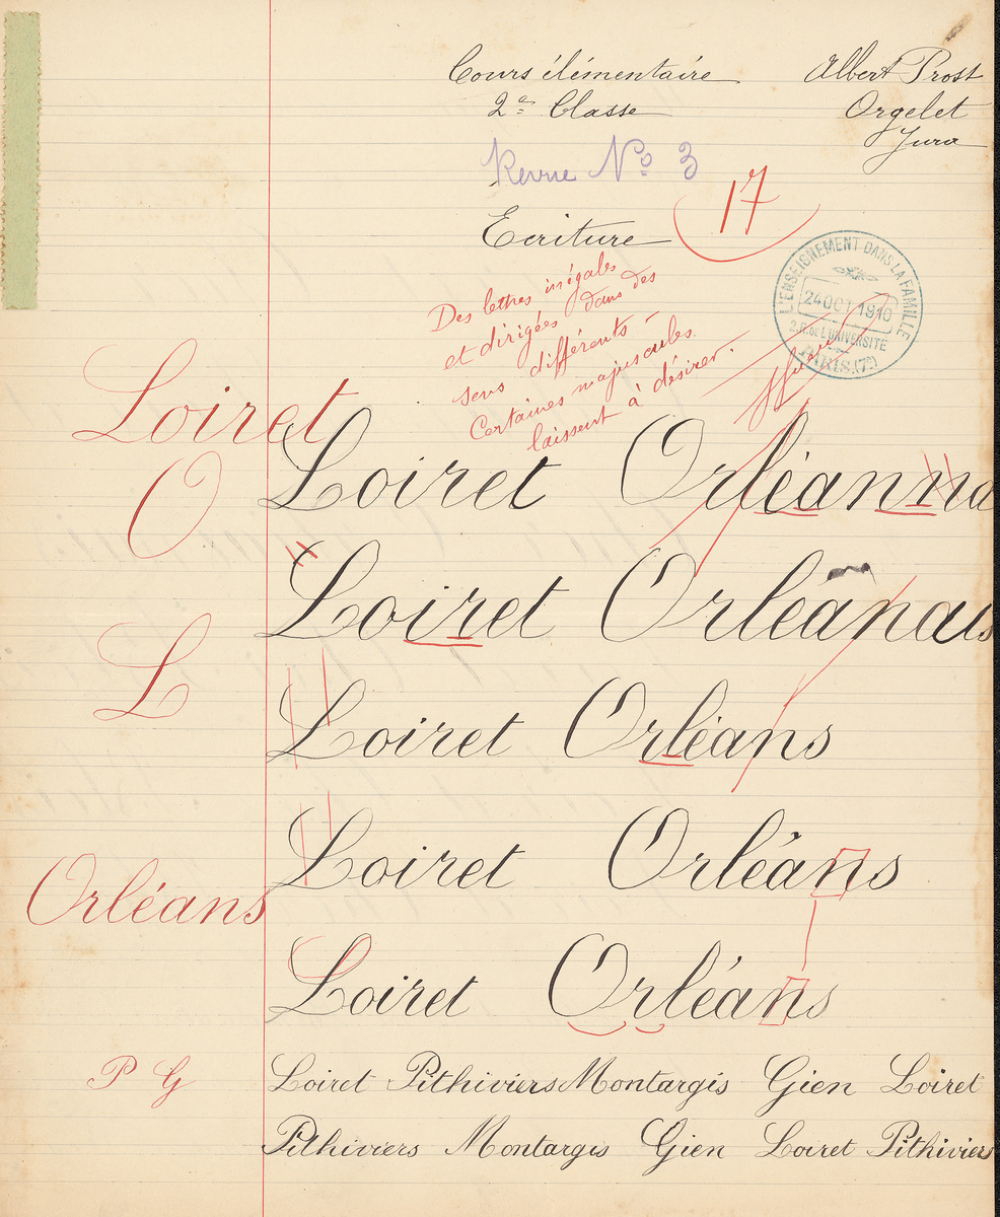 Cours élémentaire
2e Classe
Albert Prost
Orgelet
Jura
Revue No 3
Ecriture
17
L'ENSEIGNEMENT DANS LA FAMILLE
24 OCT 1910
2. R. de L'UNIVERSITÉ
PARIS. (7e)
Des lettres inégales
et dirigées dans des
sens différents –
Certaines majuscules
laissent à désirer.
Loiret
O
Loiret Orléanna
Loiret Orléanais
L
Loiret Orléans
Loiret Orléans
Orléans
Loiret Orléans
P G
Loiret Pithiviers Montargis Gien Loiret
Pithiviers Montargis Gien Loiret Pithiviers